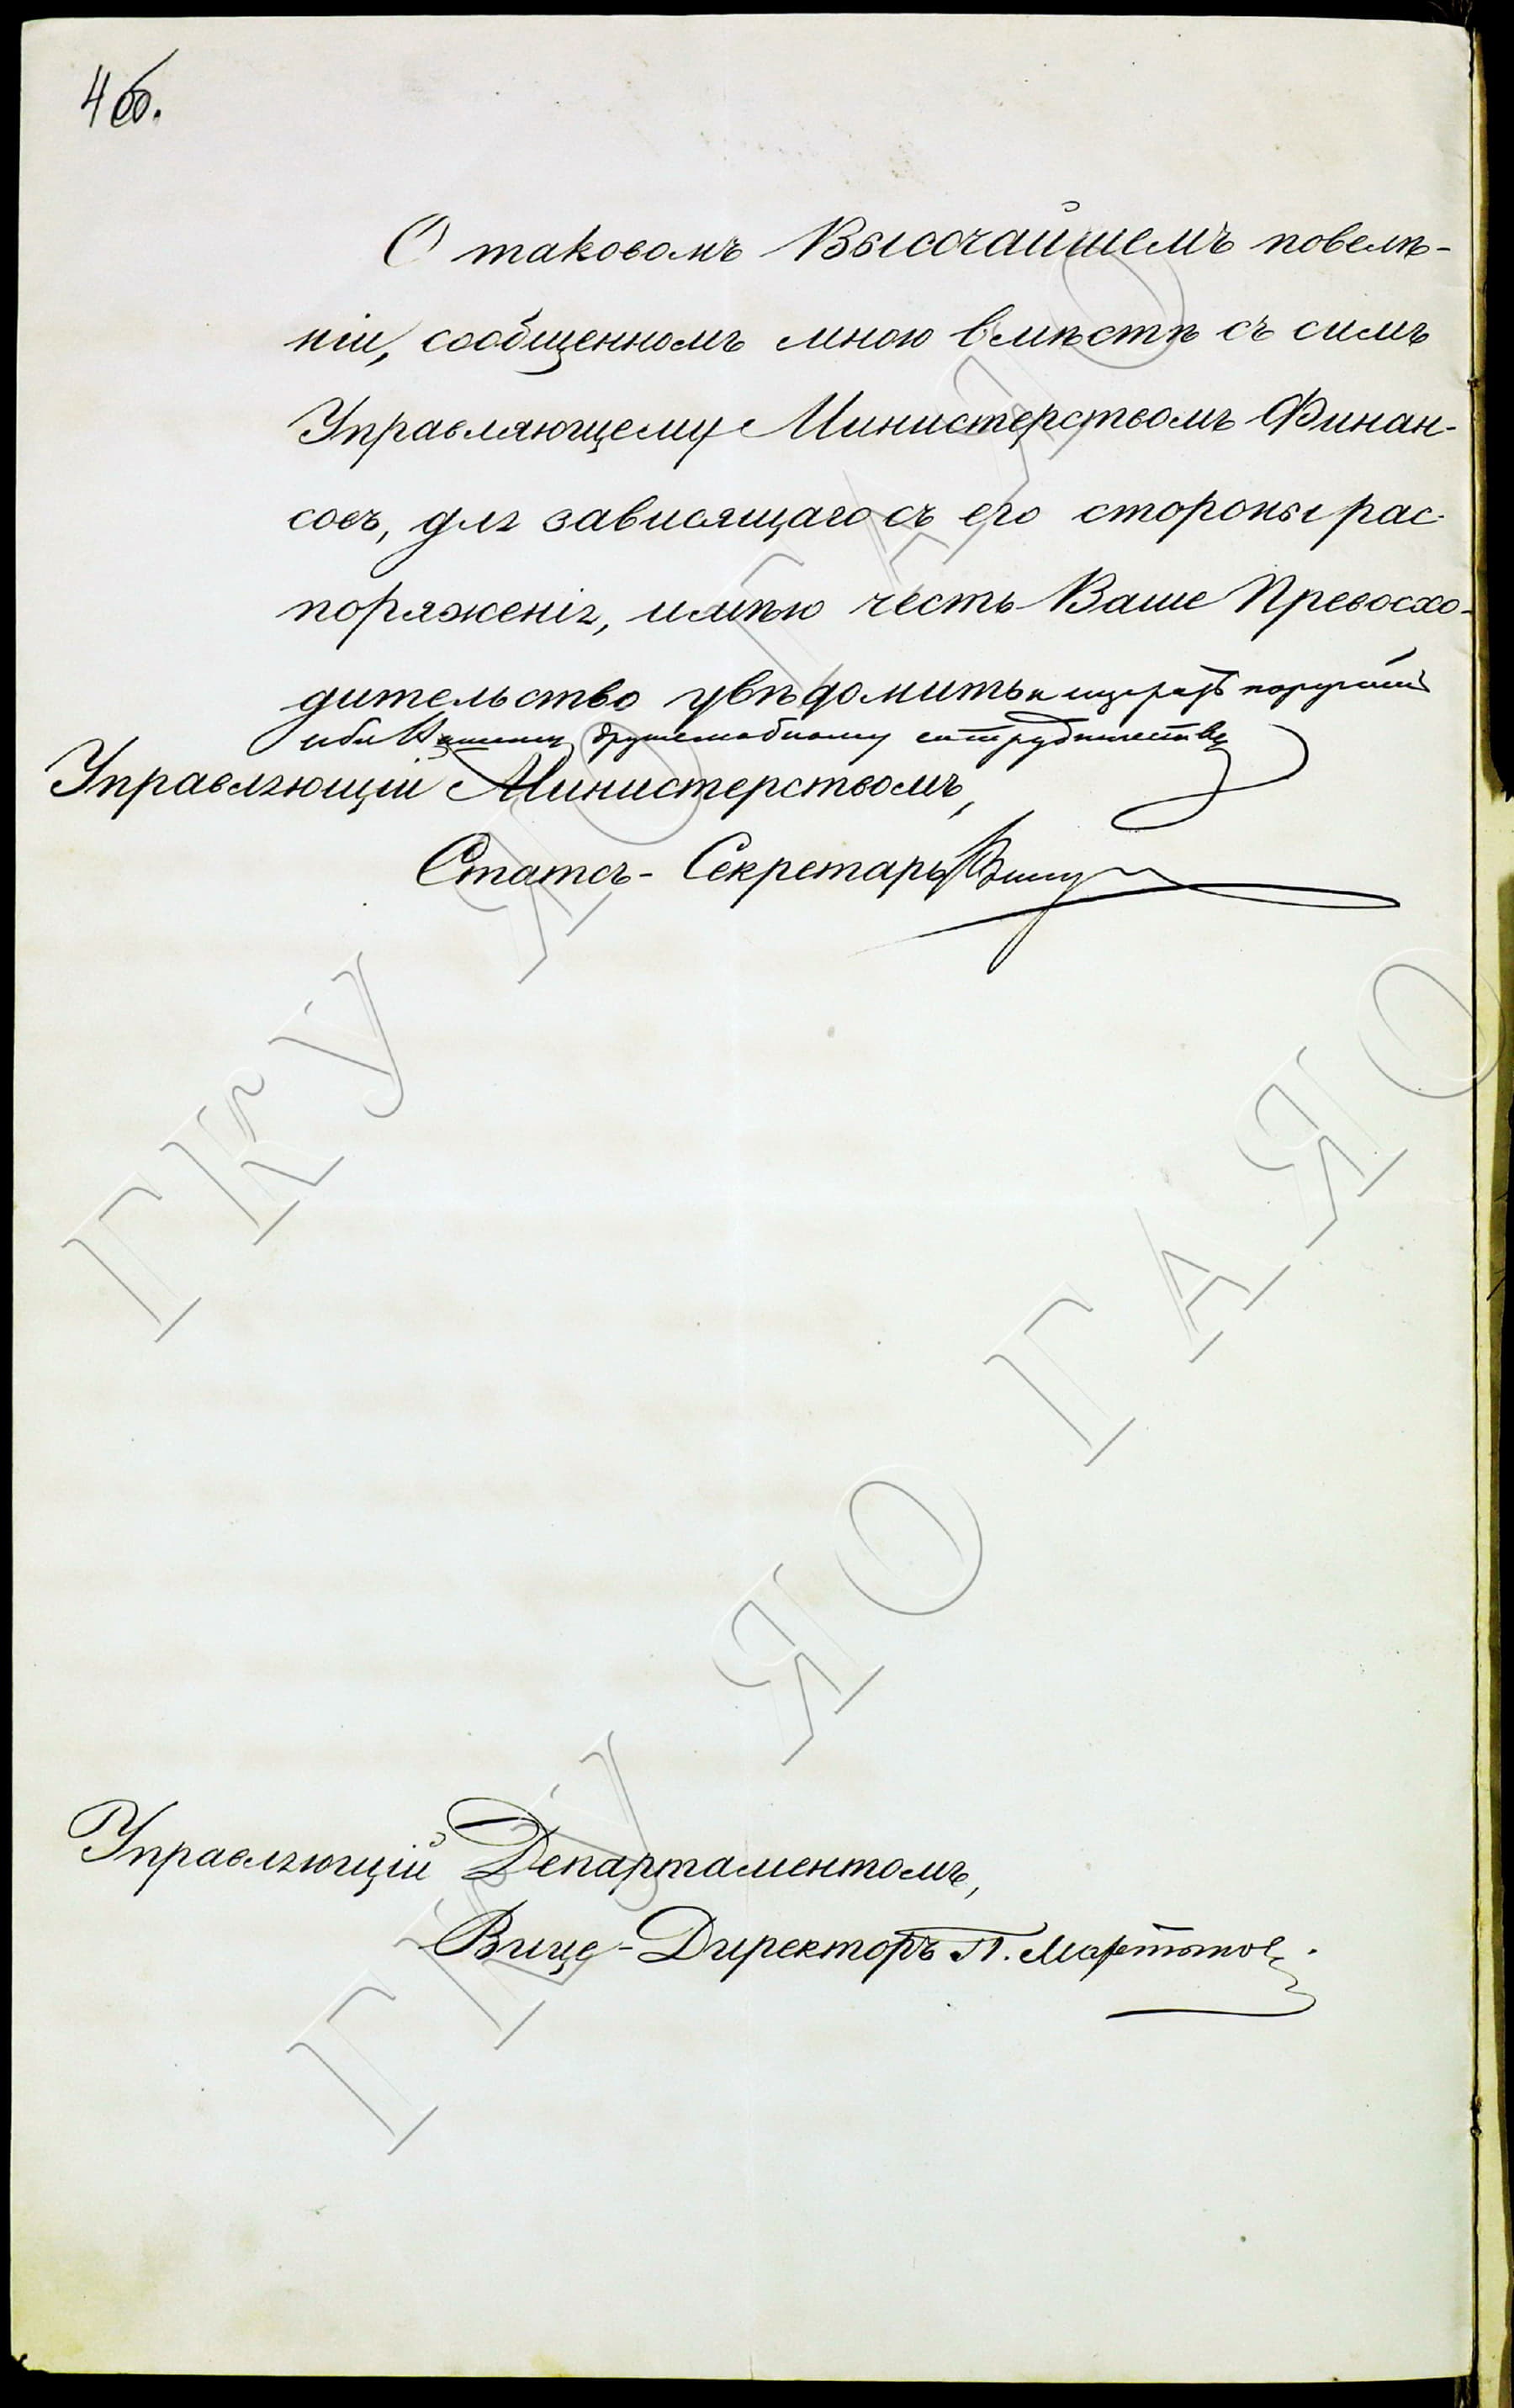 4 об.
О таковомъ Высочайшемъ повелѣ-
ніи, сообщенномъ мною вмѣстѣ съ симъ
Управляющему Министерствомъ Финан-
совъ, для зависящаго съ его стороны рас-
поряженія, имѣю честь Ваше Превосхо-
дительство увѣдомить и
дружелюбному сотрудничеству
Управляющій Министерствомъ,
Статсъ-Секретарь
Управляющій Департаментомъ,
Вице-Директоръ П. Мартынов
ГКУ ЯО ГАЯО
ГКУ ЯО ГАЯО